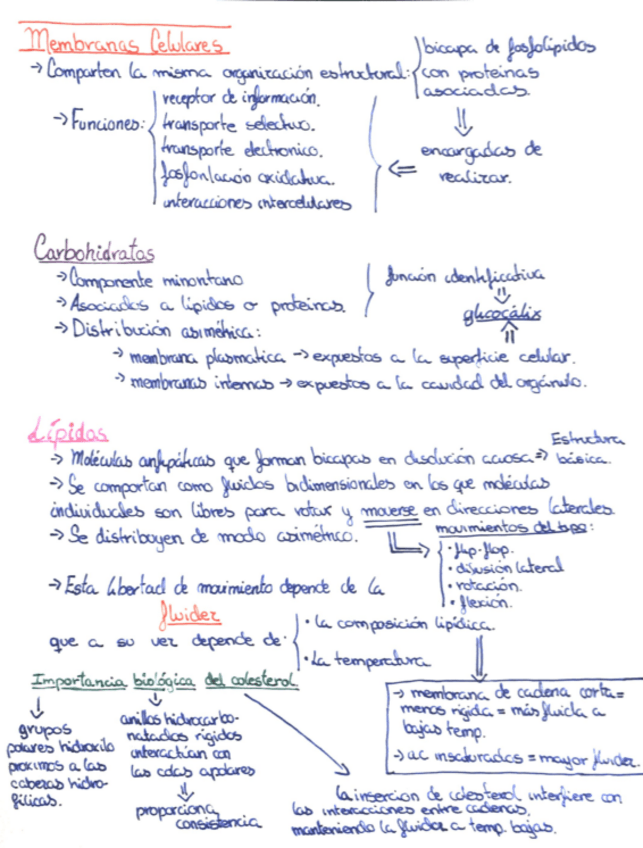 Membranas Celulares
bicapa de fosfolípidos
→ Comparten la misma organización estructural: con proteínas
asociadas.
receptor de información.
→ Funciones: transporte selectivo.
transporte electronico.
fosforilación oxidativa.
interacciones intercelulares
⇓
encargadas de
⇐ realizar.
Carbohidratos
→ Componente minoritario
→ Asociados a lípidos o proteinas.
función identificativa
⇓
glucocálix
⇑
→ Distribución asimétrica:
→ membrana plasmatica → expuestos a la superficie celular.
→ membranas internas → expuestos a la cavidad del orgánulo.
Lípidos
→ Moléculas anfipáticas que forman bicapas en disolución acuosa ⇒ Estructura
básica.
→ Se comportan como fluidos bidimensionales en los que moléculas
individuales son libres para rotar y moverse en direcciones laterales.
→ Se distribuyen de modo asimétrico.
movimientos del tipo:
· flip-flop.
· difusión lateral
· rotación.
· flexión.
→ Esta libertad de movimiento depende de la
fluidez
que a su vez depende de:
· la composición lipídica.
· La temperatura
→ membrana de cadena corta =
menos rigida = más fluida a
bajas temp.
→ ac insaturados = mayor fluidez.
Importancia biológica del colesterol
grupos
polares hidroxilo
proximos a las
cabezas hidro-
fílicas.
anillos hidrocarbo-
natados rígidos
interactúan con
las cdas apolares
⇓
proporciona
consistencia
la insercion de colesterol interfiere con
las interacciones entre cadenas,
manteniendo la fluidez a temp. bajas.